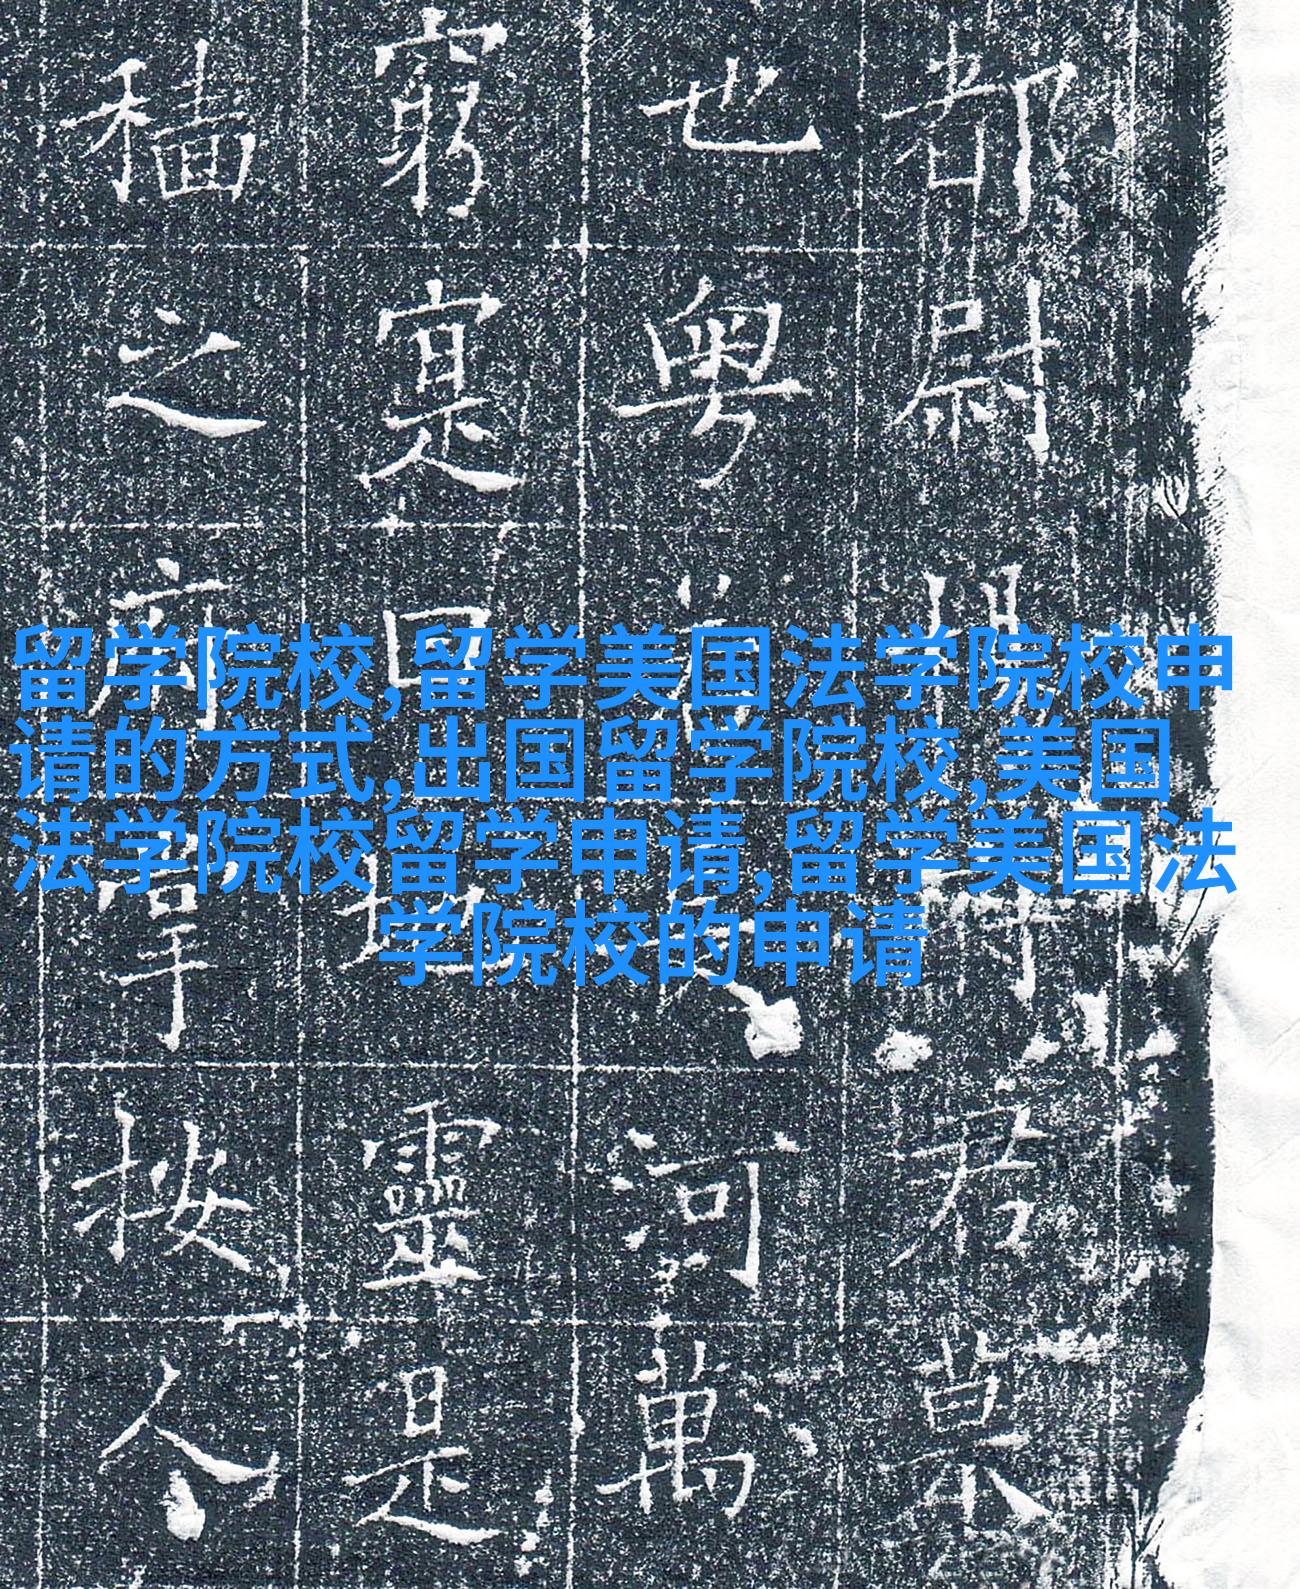 留学院校,留学美国法学院校申
请的方式,出国留学院校,美国
法学院校留学申请,留学美国法
学院校的申请
都尉
也粤河萬
窮寔曰地靈是
穡之府按人